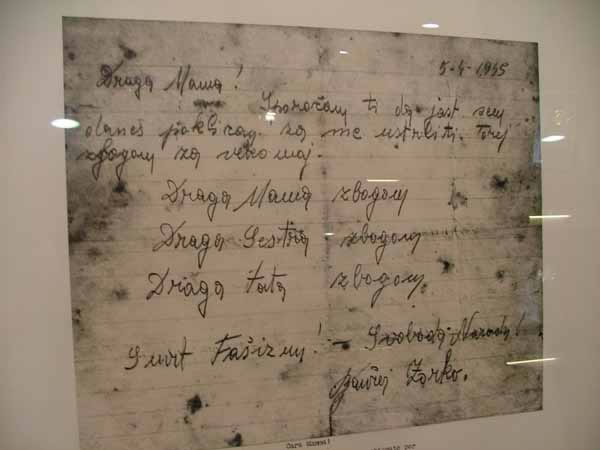 5-4-1945
Draga Mama!
Sporočam ti da jast sem
danes poklican za me ustrliti. Torej
zbogom za vekomaj.
Draga Mama zbogom
Draga Sestra zbogom
Draga tata zbogom
Smrt Fašizmu! - Svoboda Narodu!
Žarko.
Cara Mamma!